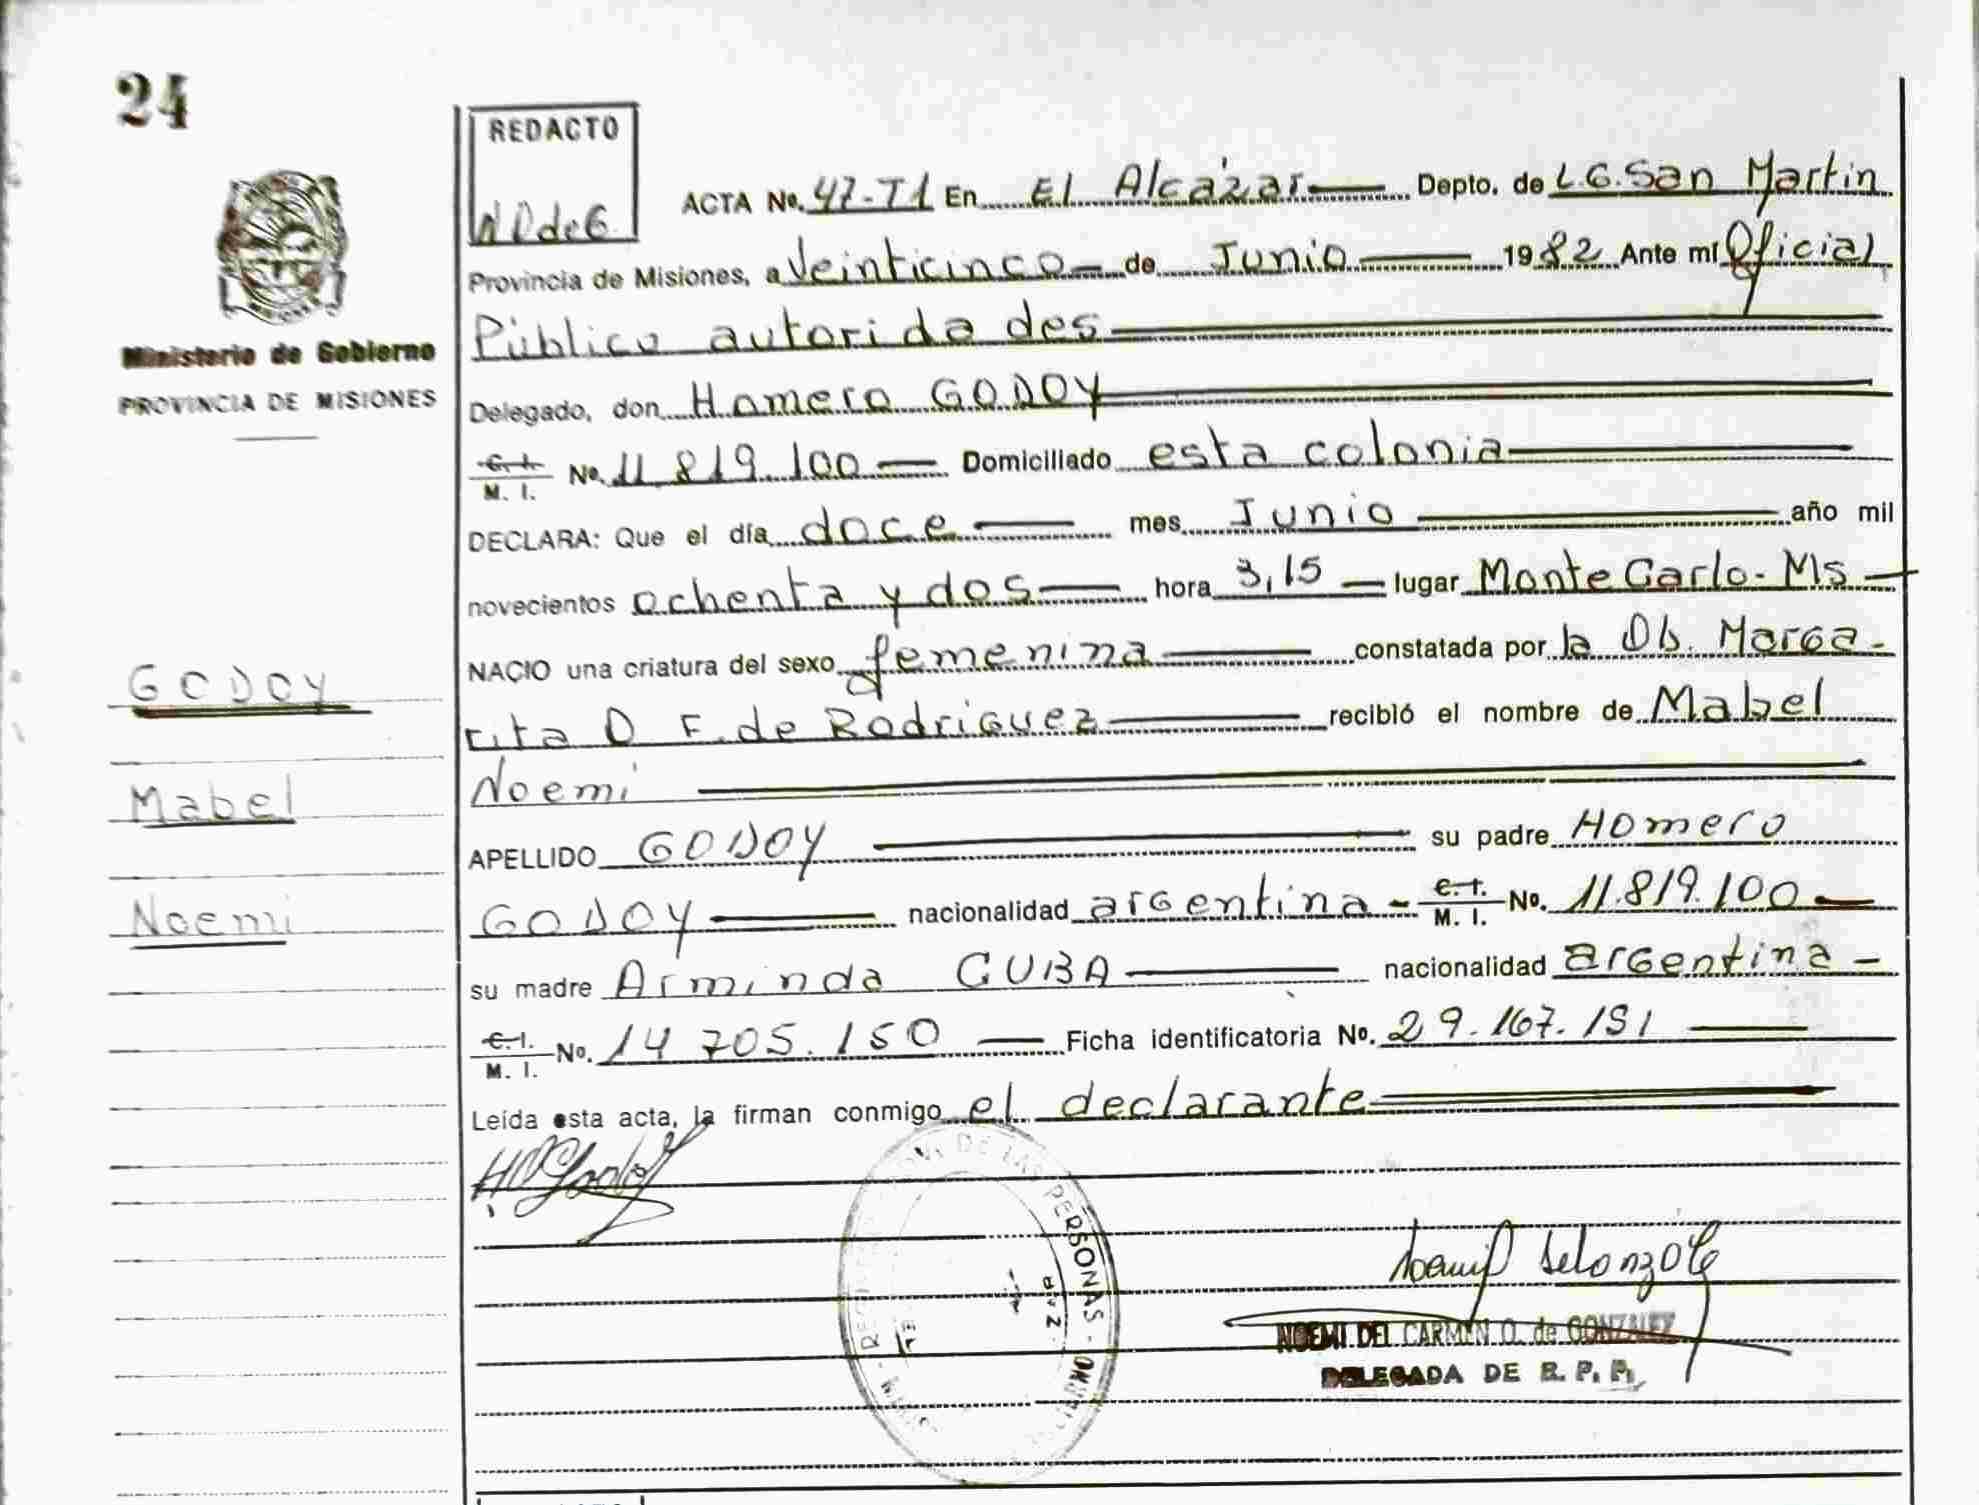 24
REDACTO
NDdeG
ACTA No. 47-T1 En El Alcázar Depto. de L.G. San Martin
Provincia de Misiones, a Veinticinco de Junio 1982 Ante mí Oficial
Público autorida des
Ministerio de Gobierno
PROVINCIA DE MISIONES
Delegado, don Homero GODOY
C. I. M. I. No. 11.819.100 Domiciliado esta colonia
DECLARA: Que el día doce mes Junio año mil
novecientos ochenta y dos hora 3,15 lugar Monte Carlo - Ms
NACIO una criatura del sexo femenina constatada por la Ob. Marga-
rita O F. de Rodriguez recibió el nombre de Mabel
Noemi
GODOY
Mabel
Noemi
APELLIDO GODOY su padre Homero
GODOY nacionalidad argentina - C. I. M. I. No. 11.819.100
su madre Arminda CUBA nacionalidad argentina -
C. I. M. I. No. 14 705.150 Ficha identificatoria No. 29.167.151
Leída esta acta, la firman conmigo el declarante
DE LAS PERSONAS
NOEMI DEL CARMEN O. de GONZALEZ
DELEGADA DE R. P. P.